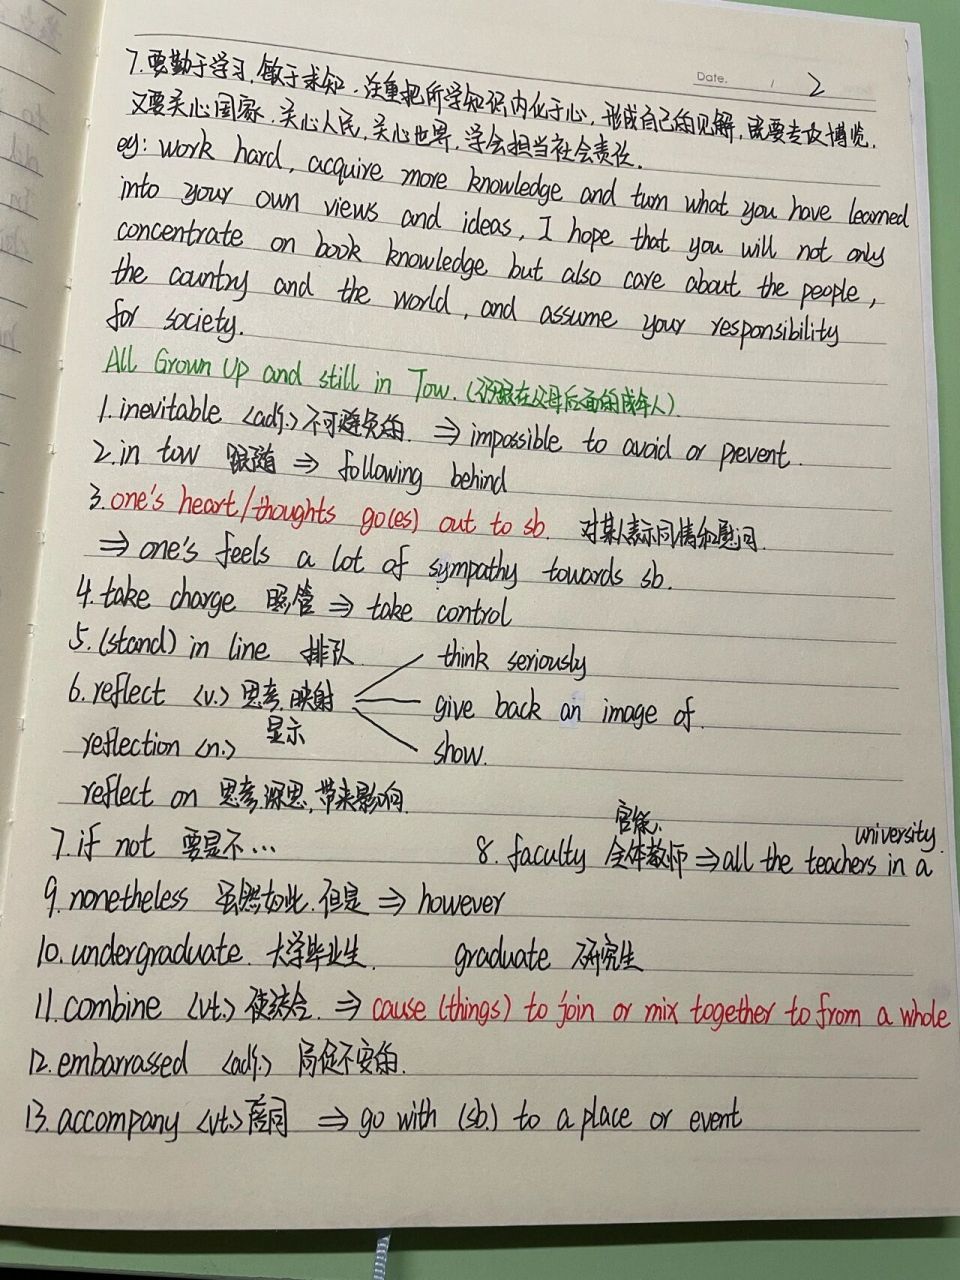 Date. / 2
7.要勤于学习,敏于求知,注重把所学知识内化于心,形成自己的见解,既要专攻博览,
又要关心国家、关心人民、关心世界,学会担当社会责任.
eg: work hard, acquire more knowledge and turn what you have learned
into your own views and ideas, I hope that you will not only
concentrate on book knowledge but also care about the people,
the country and the world, and assume your responsibility
for society.
All Grown Up and still in Tow. (仍跟在父母后面的成年人)
1. inevitable <adj.> 不可避免的. ⇒ impossible to avoid or prevent.
2. in tow 跟随 ⇒ following behind
3. one's heart/thoughts go(es) out to sb. 对某人表示同情和慰问.
⇒ one's feels a lot of sympathy towards sb.
4. take charge 照管 ⇒ take control
5. (stand) in line 排队
think seriously
6. reflect <v.> 思考,映射 give back an image of.
显示
reflection <n.> show.
reflect on 思考,深思,带来影响.
7. if not 要是不…
8. faculty 全体教师 ⇒ all the teachers in a university.
9. nonetheless 虽然如此,但是 ⇒ however
10. undergraduate. 大学毕业生. graduate 研究生
11. combine <vt.> 使结合. ⇒ cause (things) to join or mix together to from a whole
12. embarrassed <adj.> 局促不安的.
13. accompany <vt.> 陪同 ⇒ go with (sb.) to a place or event